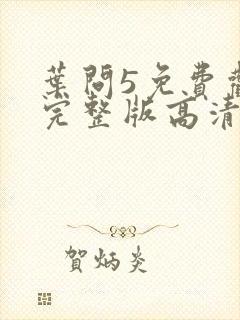 葉問5免費
完整版高清
賀炳炎